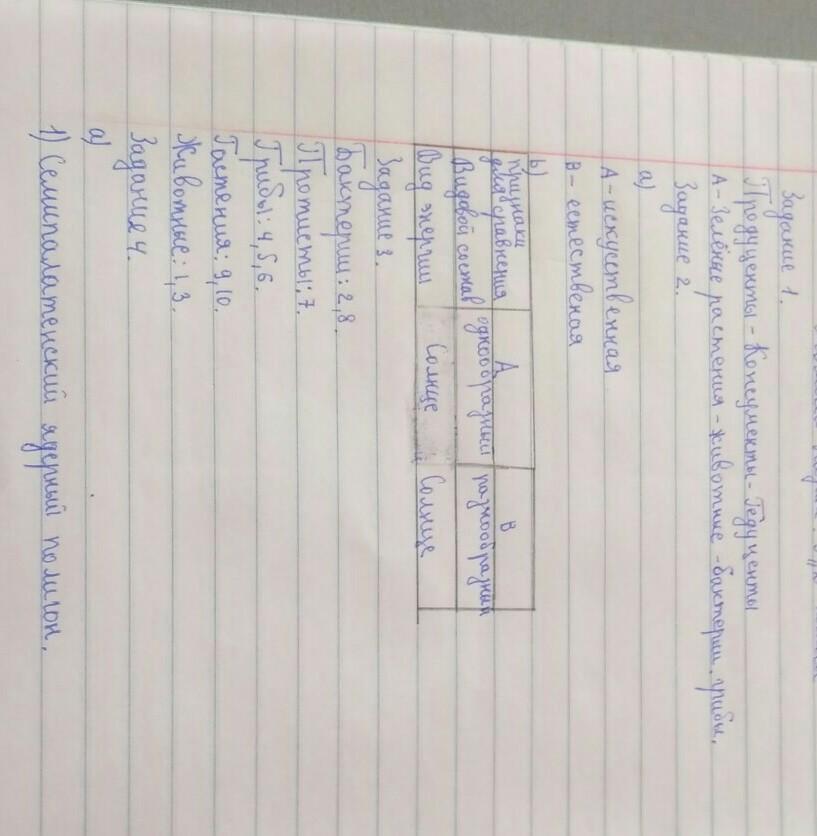 Задание 1.
Продуценты - Консументы - Редуценты
А - Зелёные растения - животные - бактерии, грибы.
Задание 2.
а)
А - искусственная
В - естественая
b)
признаки для сравнения А В
Видовой состав однообразный разнообразный
Вид энергии Солнце Солнце
Задание 3.
Бактерии: 2,8.
Протисты: 7.
Грибы: 4,5,6.
Растения: 9,10.
Животные: 1,3.
Задания 4.
а)
1) Семипалатенский ядерный полигон.